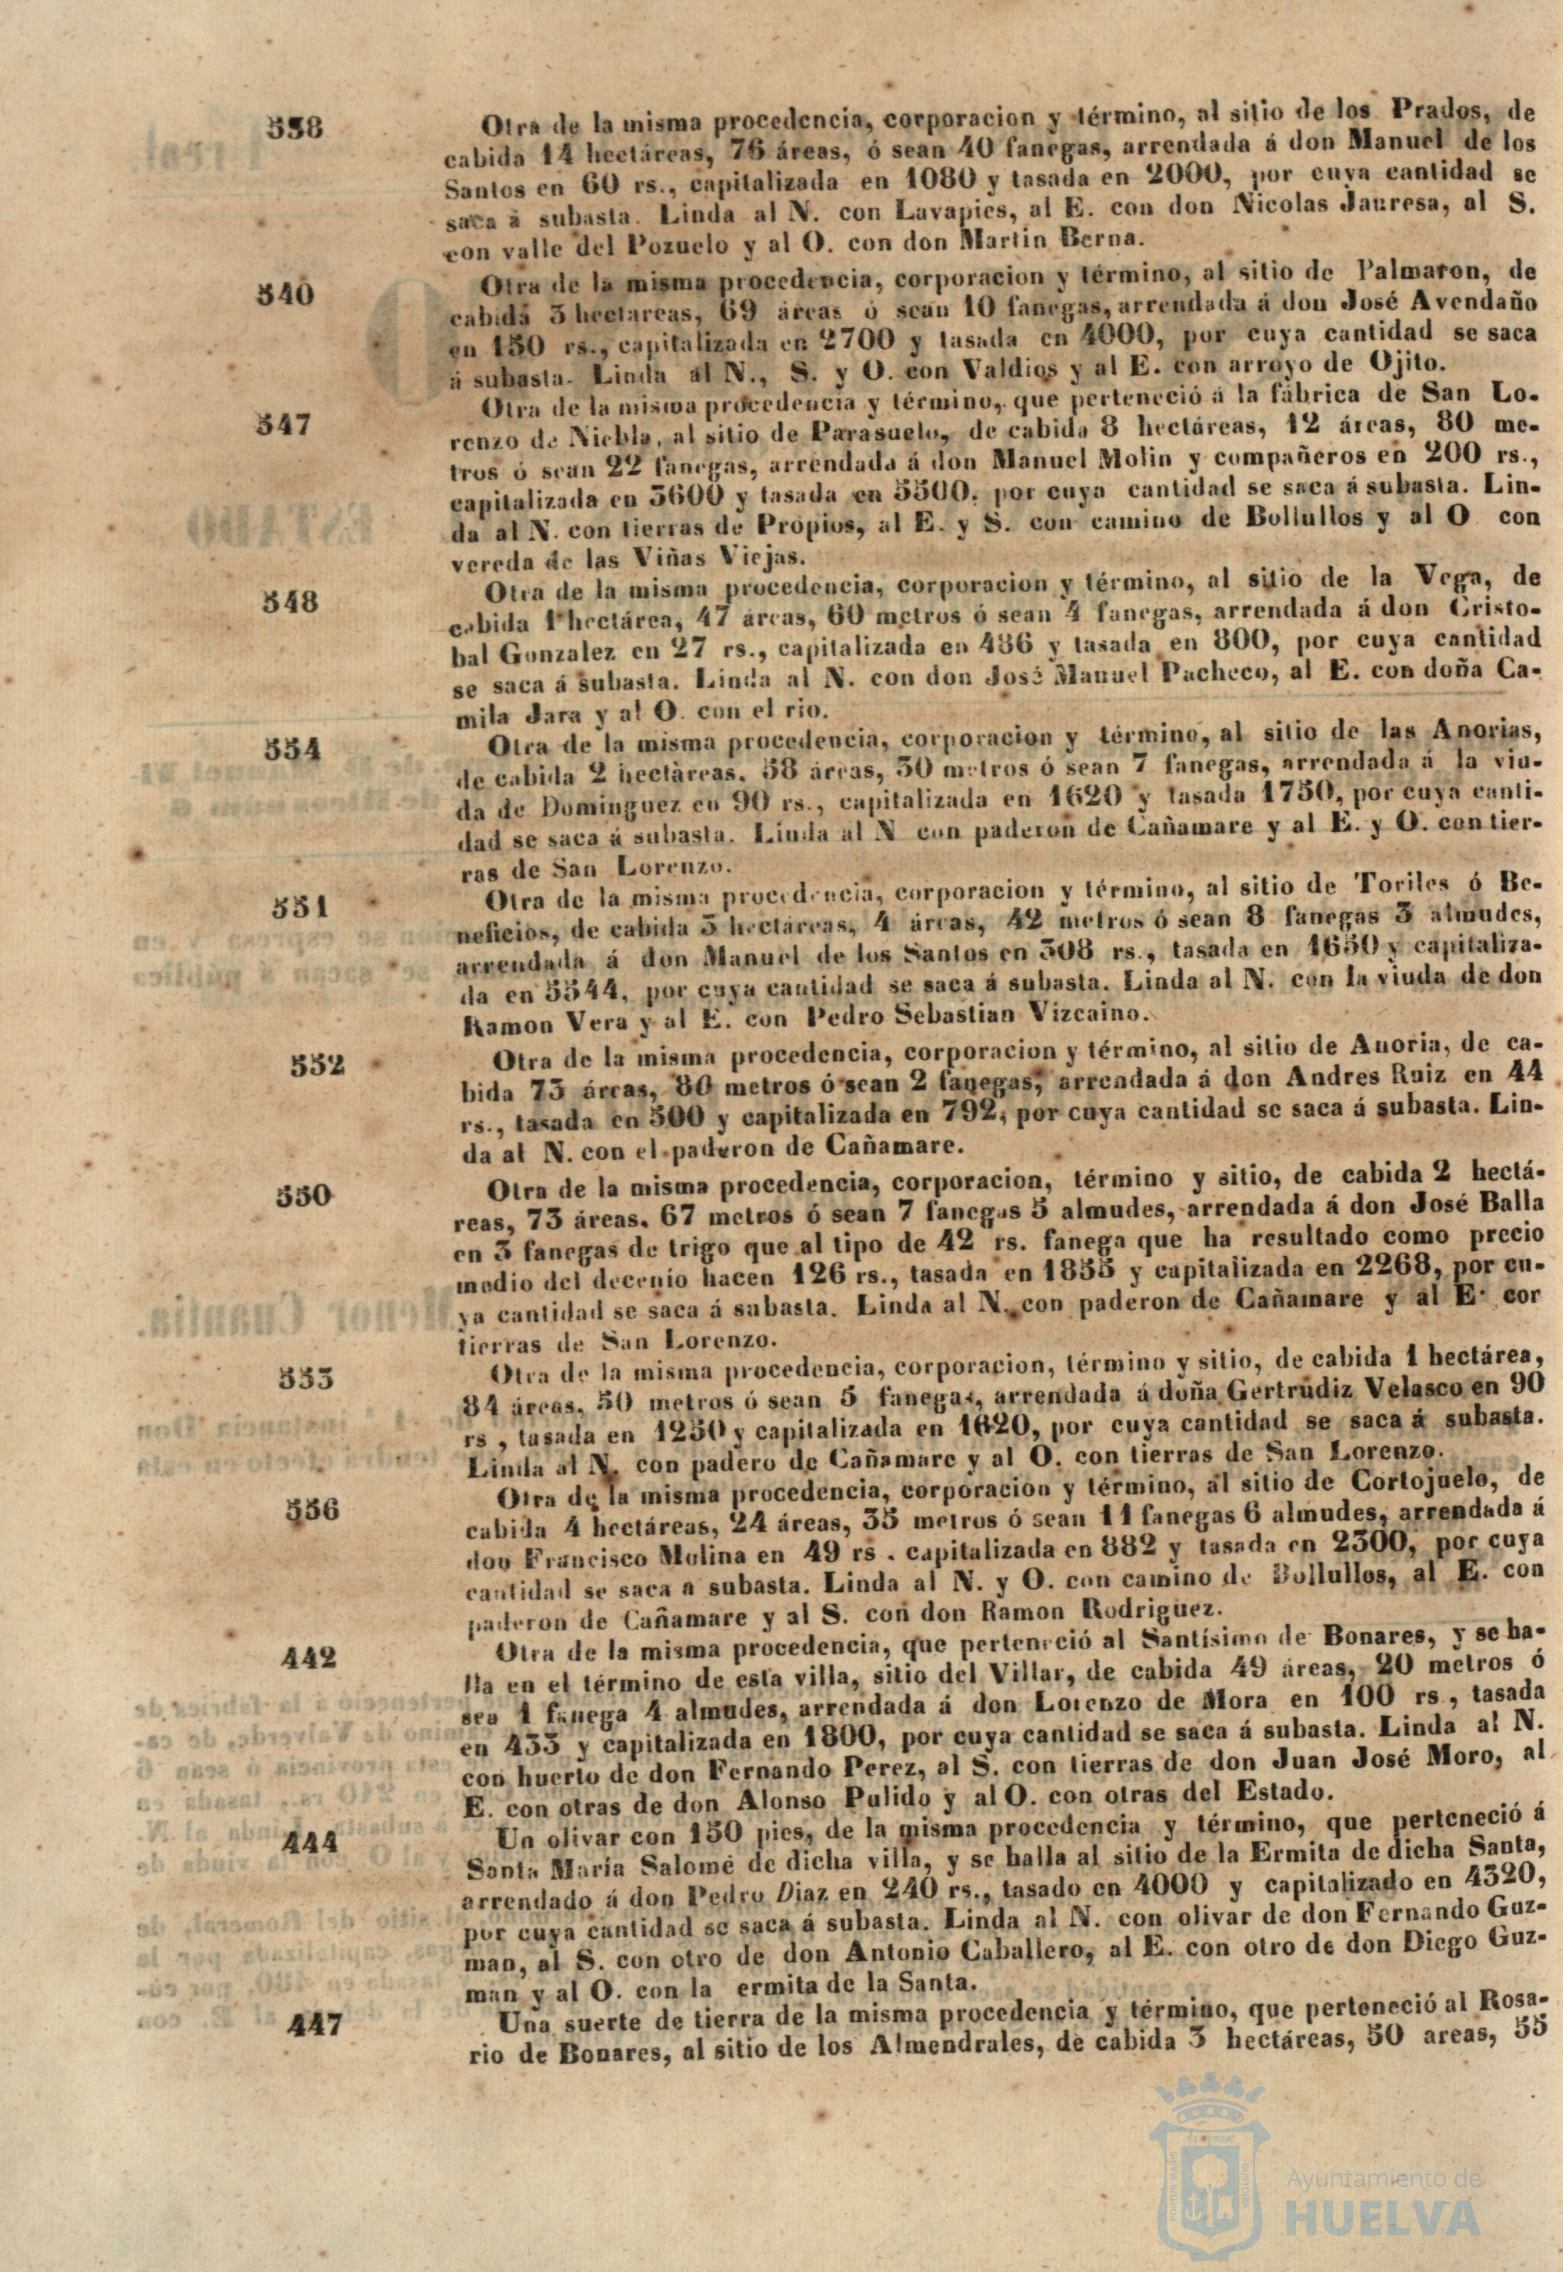 338 Otra de la misma procedencia, corporacion y término, al sitio de los Prados, de
cabida 14 hectáreas, 76 áreas, ó sean 40 fanegas, arrendada á don Manuel de los
Santos en 60 rs., capitalizada en 1080 y tasada en 2000, por cuya cantidad se
saca á subasta. Linda al N. con Lavapies, al E. con don Nicolas Jauresa, al S.
con valle del Pozuelo y al O. con don Martin Berna.
340 Otra de la misma procedencia, corporacion y término, al sitio de Palmaron, de
cabida 3 hectareas, 69 áreas ó sean 10 fanegas, arrendada á don José Avendaño
en 150 rs., capitalizada en 2700 y tasada en 4000, por cuya cantidad se saca
á subasta. Linda al N., S. y O. con Valdios y al E. con arroyo de Ojito.
347 Otra de la misma procedencia y término, que perteneció á la fábrica de San Lo-
renzo de Niebla, al sitio de Parasuelo, de cabida 8 hectáreas, 12 áreas, 80 me-
tros ó sean 22 fanegas, arrendada á don Manuel Molin y compañeros en 200 rs.,
capitalizada en 3600 y tasada en 5500, por cuya cantidad se saca á subasta. Lin-
da al N. con tierras de Propios, al E. y S. con camino de Bollullos y al O con
vereda de las Viñas Viejas.
348 Otra de la misma procedencia, corporacion y término, al sitio de la Vega, de
cabida 1 hectárea, 47 areas, 60 metros ó sean 4 fanegas, arrendada á don Cristo-
bal Gonzalez en 27 rs., capitalizada en 486 y tasada en 800, por cuya cantidad
se saca á subasta. Linda al N. con don José Manuel Pacheco, al E. con doña Ca-
mila Jara y al O. con el rio.
354 Otra de la misma procedencia, corporacion y término, al sitio de las Anorias,
de cabida 2 hectàreas, 58 áreas, 30 metros ó sean 7 fanegas, arrendada á la viu-
da de Dominguez en 90 rs., capitalizada en 1620 y tasada 1750, por cuya canti-
dad se saca á subasta. Linda al N con paderon de Cañamare y al E. y O. con tier-
ras de San Lorenzo.
351 Otra de la misma procedencia, corporacion y término, al sitio de Toriles ó Be-
neficios, de cabida 3 hectáreas, 4 áreas, 42 metros ó sean 8 fanegas 3 almudes,
arrendada á don Manuel de los Santos en 308 rs., tasada en 1650 y capitaliza-
da en 5544, por cuya cantidad se saca á subasta. Linda al N. con la viuda de don
Ramon Vera y al E. con Pedro Sebastian Vizcaino.
352 Otra de la misma procedencia, corporacion y término, al sitio de Anoria, de ca-
bida 73 áreas, 80 metros ó sean 2 fanegas, arrendada á don Andres Ruiz en 44
rs., tasada en 500 y capitalizada en 792, por cuya cantidad se saca á subasta. Lin-
da al N. con el paderon de Cañamare.
350 Otra de la misma procedencia, corporacion, término y sitio, de cabida 2 hectá-
reas, 73 áreas, 67 metros ó sean 7 fanegas 5 almudes, arrendada á don José Balla
en 3 fanegas de trigo que al tipo de 42 rs. fanega que ha resultado como precio
medio del decenio hacen 126 rs., tasada en 1855 y capitalizada en 2268, por cu-
ya cantidad se saca á subasta. Linda al N. con paderon de Cañamare y al E. cor
tierras de San Lorenzo.
353 Otra de la misma procedencia, corporacion, término y sitio, de cabida 1 hectárea,
84 áreas, 50 metros ó sean 5 fanegas, arrendada á doña Gertrudiz Velasco en 90
rs , tasada en 1250 y capitalizada en 1620, por cuya cantidad se saca á subasta.
Linda al N. con padero de Cañamare y al O. con tierras de San Lorenzo.
356 Otra de la misma procedencia, corporacion y término, al sitio de Cortojuelo, de
cabida 4 hectáreas, 24 áreas, 35 metros ó sean 11 fanegas 6 almudes, arrendada á
don Francisco Molina en 49 rs . capitalizada en 882 y tasada en 2300, por cuya
cantidad se saca a subasta. Linda al N. y O. con camino de Bollullos, al E. con
paderon de Cañamare y al S. con don Ramon Rodriguez.
442 Otra de la misma procedencia, que perteneció al Santísimo de Bonares, y se ha-
lla en el término de esta villa, sitio del Villar, de cabida 49 áreas, 20 metros ó
sea 1 fanega 4 almudes, arrendada á don Lorenzo de Mora en 100 rs., tasada
en 433 y capitalizada en 1800, por cuya cantidad se saca á subasta. Linda al N.
con huerto de don Fernando Perez, al S. con tierras de don Juan José Moro, al
E. con otras de don Alonso Pulido y al O. con otras del Estado.
444 Un olivar con 150 pies, de la misma procedencia y término, que perteneció á
Santa María Salomé de dicha villa, y se halla al sitio de la Ermita de dicha Santa,
arrendado á don Pedro Diaz en 240 rs., tasado en 4000 y capitalizado en 4320,
por cuya cantidad se saca á subasta. Linda al N. con olivar de don Fernando Guz-
man, al S. con otro de don Antonio Caballero, al E. con otro de don Diego Guz-
man y al O. con la ermita de la Santa.
447 Una suerte de tierra de la misma procedencia y término, que perteneció al Rosa-
rio de Bonares, al sitio de los Almendrales, de cabida 3 hectáreas, 50 areas, 55
Ayuntamiento de
HUELVA